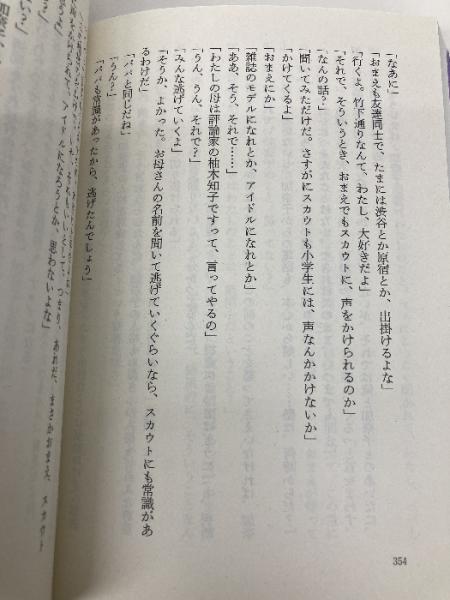 「なあに」
「おまえも友達同士で、たまには渋谷とか原宿とか、出掛けるよな」
「行くよ。竹下通りなんて、わたし、大好きだよ」
「それで、そういうとき、おまえでもスカウトに、声をかけられるのか」
「なんの話？」
「聞いてみただけだ。さすがにスカウトも小学生には、声なんかかけないか」
「かけてくるよ」
「おまえにか」
「雑誌のモデルになれとか、アイドルになれとか」
「ああ、そう、それで……」
「わたしの母は評論家の柚木知子ですって、言ってやるの」
「うん、うん、それで？」
「みんな逃げていくよ」
「そうか、よかった。お母さんの名前を聞いて逃げていくぐらいなら、スカウトにも常識があ
るわけだ」
「パパと同じだね」
「うん？」
「パパも常識があったから、逃げたんでしょう」
つまり、あれだ、まさかおまえ、スカウト
アイドルになろうとか、思わないよな」
354